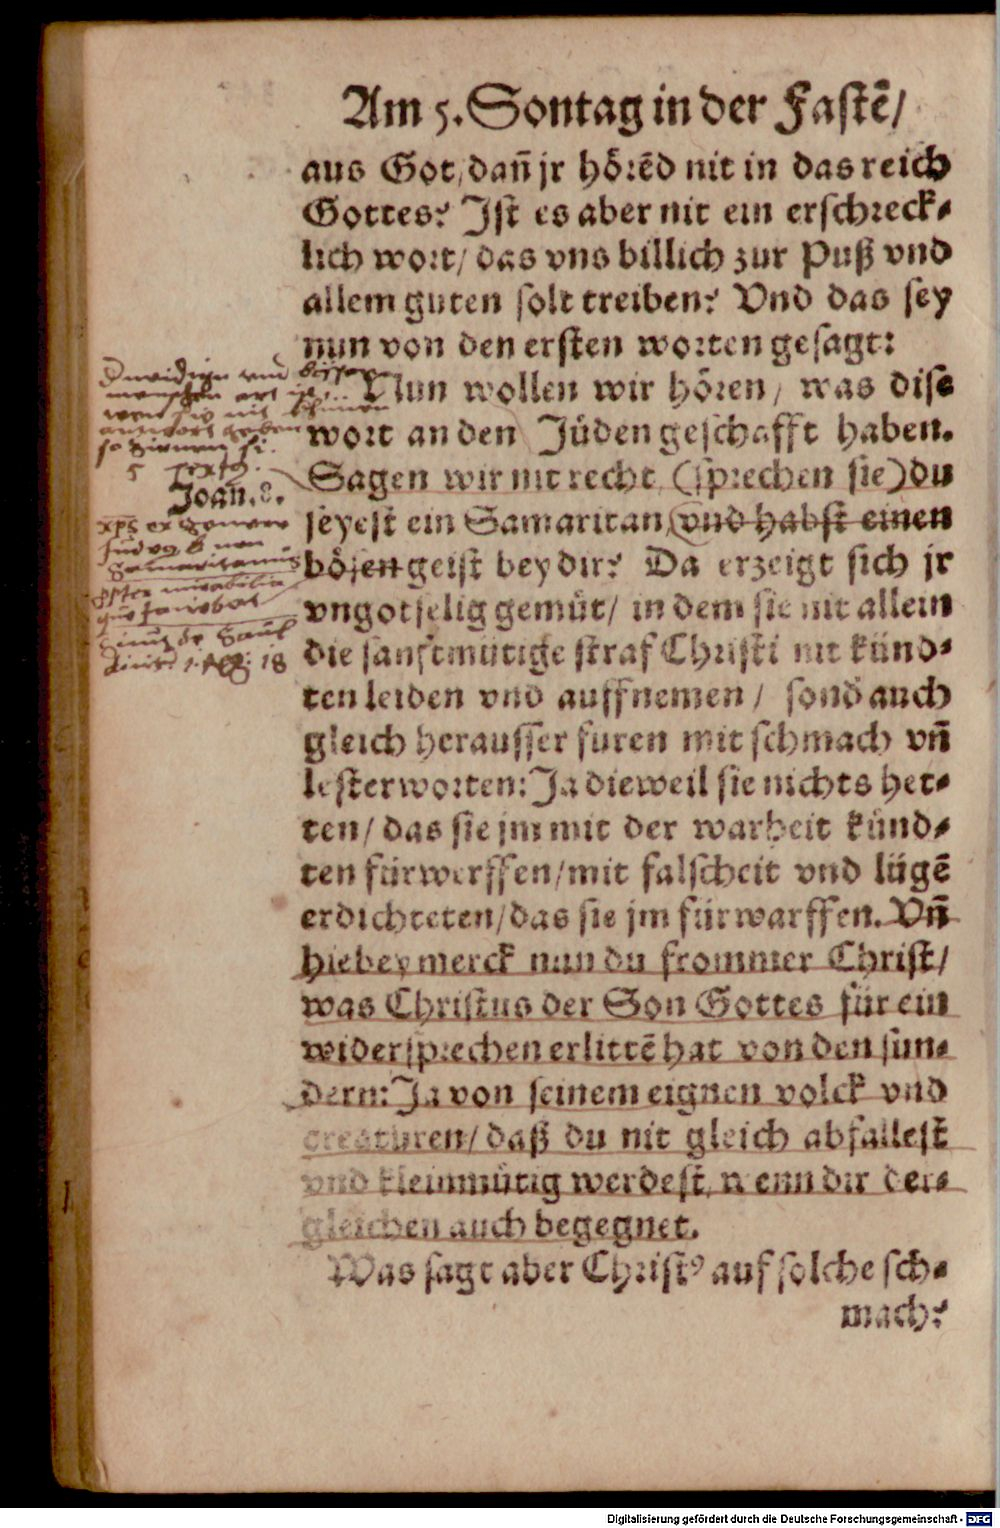 Am 5. Sontag in der Fastē/
aus Got/ dañ jr hörēd nit in das reich
Gottes? Ist es aber nit ein erschreck⸗
lich wort/ das vns billich zur Puß vnd
allem guten solt treiben? Vnd das sey
nun von den ersten worten gesagt:
Nun wollen wir hören/ was dise
wort an den Jüden geschafft haben.
Joañ. 8.
Sagen wir nit recht (sprechen sie) du
seyest ein Samaritan, vnd habst einen
bösen geist bey dir? Da erzeigt sich jr
vngotselig gemüt/ in dem sie nit allein
die sanftmütige straf Christi nit künd⸗
ten leiden vnd auffnemen/ sond auch
gleich herausser furen mit schmach vñ
lesterworten: Ja dieweil sie nichts het⸗
ten/ das sie jm mit der warheit künd⸗
ten fürwerffen/ mit falscheit vnd lügē
erdichteten/ das sie jm fürwarffen. Vñ
hiebey merck nun du frommer Christ/
was Christus der Son Gottes für ein
widersprechen erlittē hat von den sün⸗
dern: Ja von seinem eignen volck vnd
creaturen/ daß du nit gleich abfallest
vnd kleinmütig werdest, wenn dir der⸗
gleichen auch begegnet.
Was sagt aber Christꝰ auf solche sch⸗
mach?
Digitalisierung gefördert durch die Deutsche Forschungsgemeinschaft - DFG